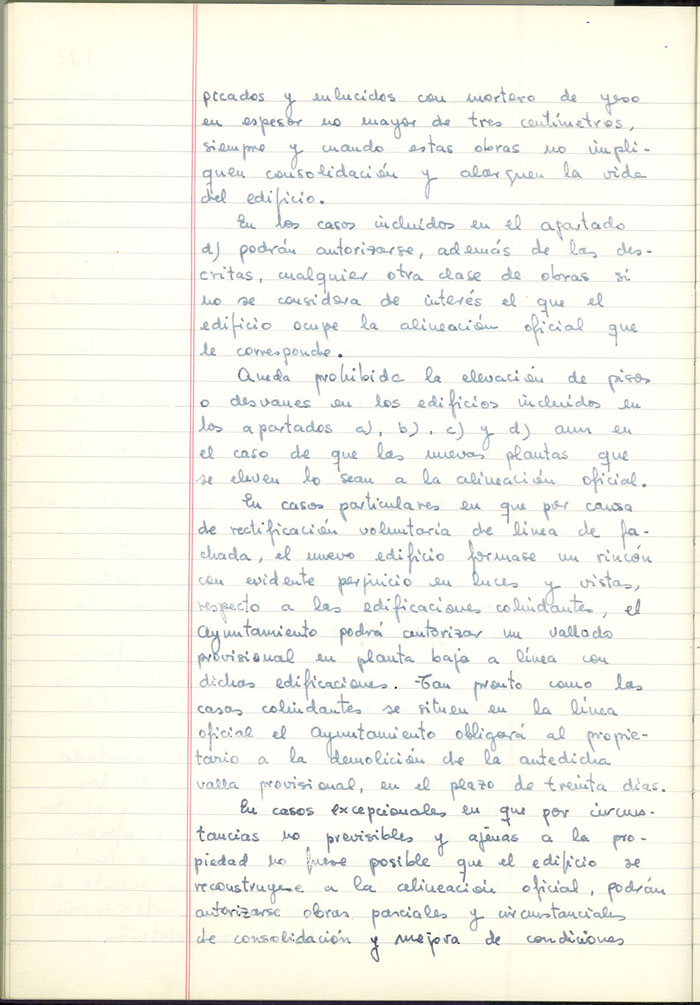 picados y enlucidos con mortero de yeso
en espesor no mayor de tres centímetros,
siempre y cuando estas obras no impli-
quen consolidación y alarguen la vida
del edificio.
En los casos incluídos en el apartado
d) podrán autorizarse, además de las des-
critas, cualquier otra clase de obras si
no se considera de interés el que el
edificio ocupe la alineación oficial que
le corresponde.
Queda prohibida la elevación de pisos
o desvanes en los edificios incluídos en
los apartados a), b), c) y d) aun en
el caso de que las nuevas plantas que
se eleven lo sean a la alineación oficial.
En casos particulares en que por causa
de rectificación voluntaria de línea de fa-
chada, el nuevo edificio formase un rincón
con evidente perjuicio en luces y vistas,
respecto a las edificaciones colindantes, el
Ayuntamiento podrá autorizar un vallado
provisional en planta baja a línea con
dichas edificaciones. Tan pronto como las
casas colindantes se situen en la línea
oficial el Ayuntamiento obligará al propie-
tario a la demolición de la antedicha
valla provisional, en el plazo de treinta días.
En casos excepcionales en que por circuns-
tancias no previsibles y ajenas a la pro-
piedad no fuese posible que el edificio se
reconstruyese a la alineación oficial, podrán
autorizarse obras parciales y circunstanciales
de consolidación y mejora de condiciones